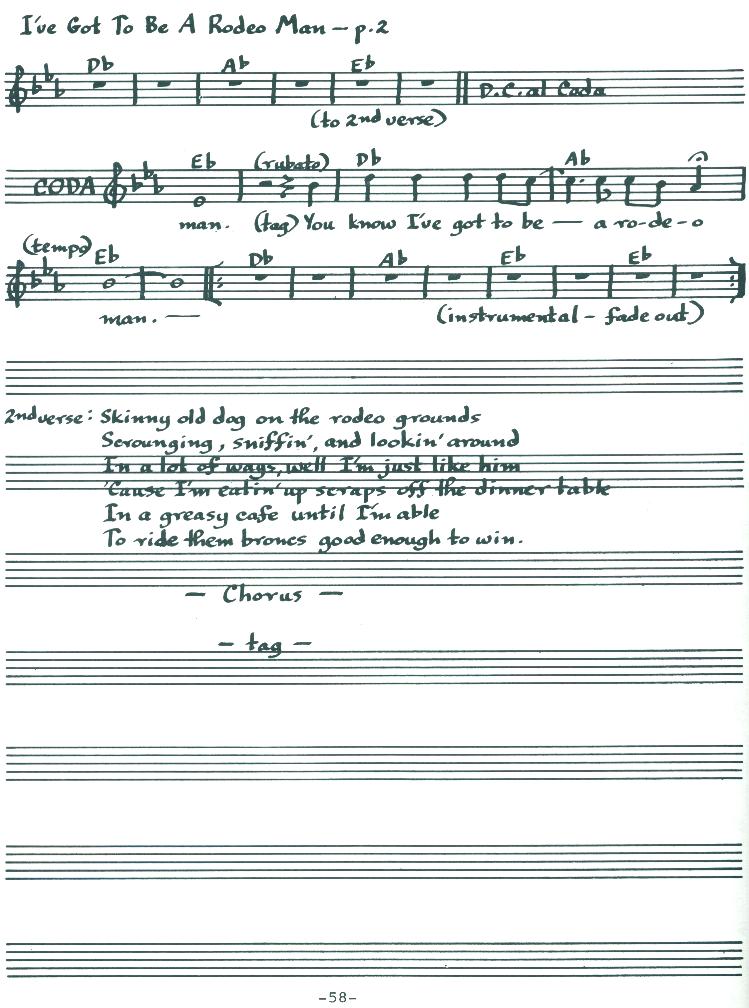 I've Got To Be A Rodeo Man – p.2
Db Ab Eb
D.C. al Coda
(to 2nd verse)
Eb (rubato) Db Ab
CODA
man. (tag) You know I've got to be — a ro-de-o
(tempo) Eb Db Ab Eb Eb
man. — (instrumental - fade out)
2nd verse: Skinny old dog on the rodeo grounds
Scrounging, sniffin', and lookin' around
In a lot of ways, well I'm just like him
'Cause I'm eatin' up scraps off the dinner table
In a greasy cafe until I'm able
To ride them broncs good enough to win.
— Chorus —
— tag —
-58-